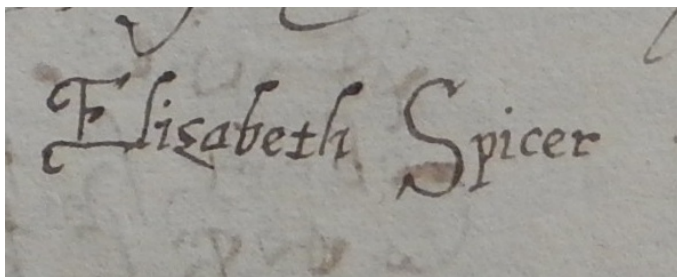 Elizabeth Spicer